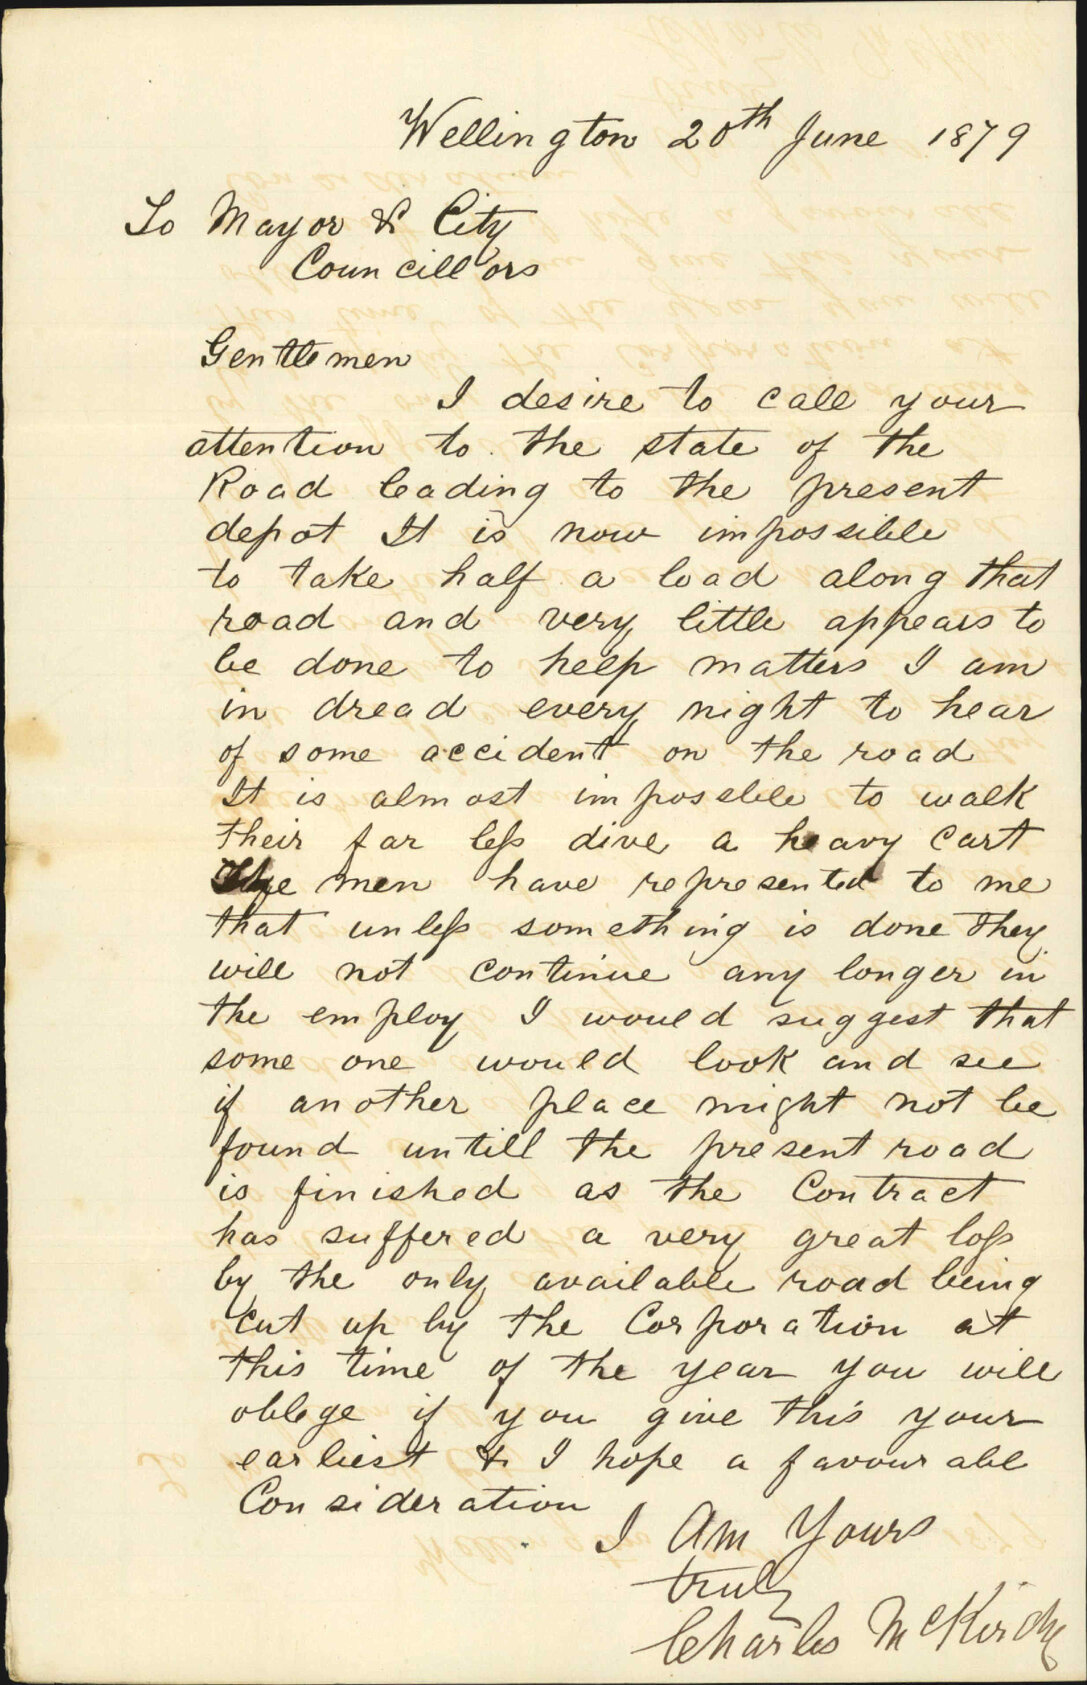 Wellington 20th June 1879
To Mayor & City
Councillors
Gentlemen
I desire to call your
attention to the state of the
Road leading to the present
depot It is now impossible
to take half a load along that
road and very little appears to
be done to help matters I am
in dread every night to hear
of some accident on the road
It is almost impossble to walk
their far less dive a heavy cart
The men have represented to me
that unless something is done they
will not continue any longer in
the employ I would suggest that
some one would look and see
if another place might not be
found untill the present road
is finished as the Contract
has suffered a very great loss
by the only available road being
cut up by the Corporation at
this time of the year you will
oblege if you give this your
earliest & I hope a favourable
Consideration
I Am Yours
truly
Charles McKirdy